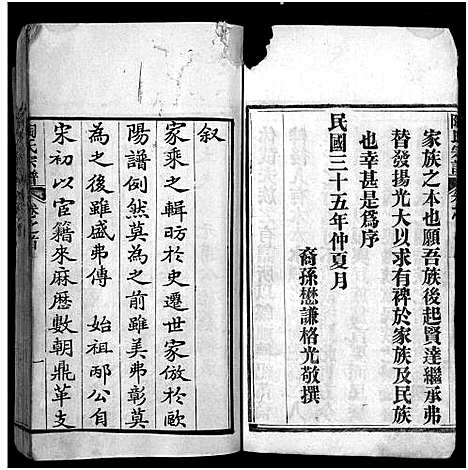 家族之本也願吾族後起賢達繼承弗
替發揚光大以求有裨於家族及民族
也幸甚是為序
民國三十五年仲夏月
裔孫懋謙格光敬撰
叙
家乘之輯昉於史遷世家倣於歐
陽譜例然莫為之前雖美弗彰莫
為之後雖盛弗傳 始祖邴公自
宋初以宦籍來麻歷數朝鼎革支
陶氏宗譜 卷之首 一